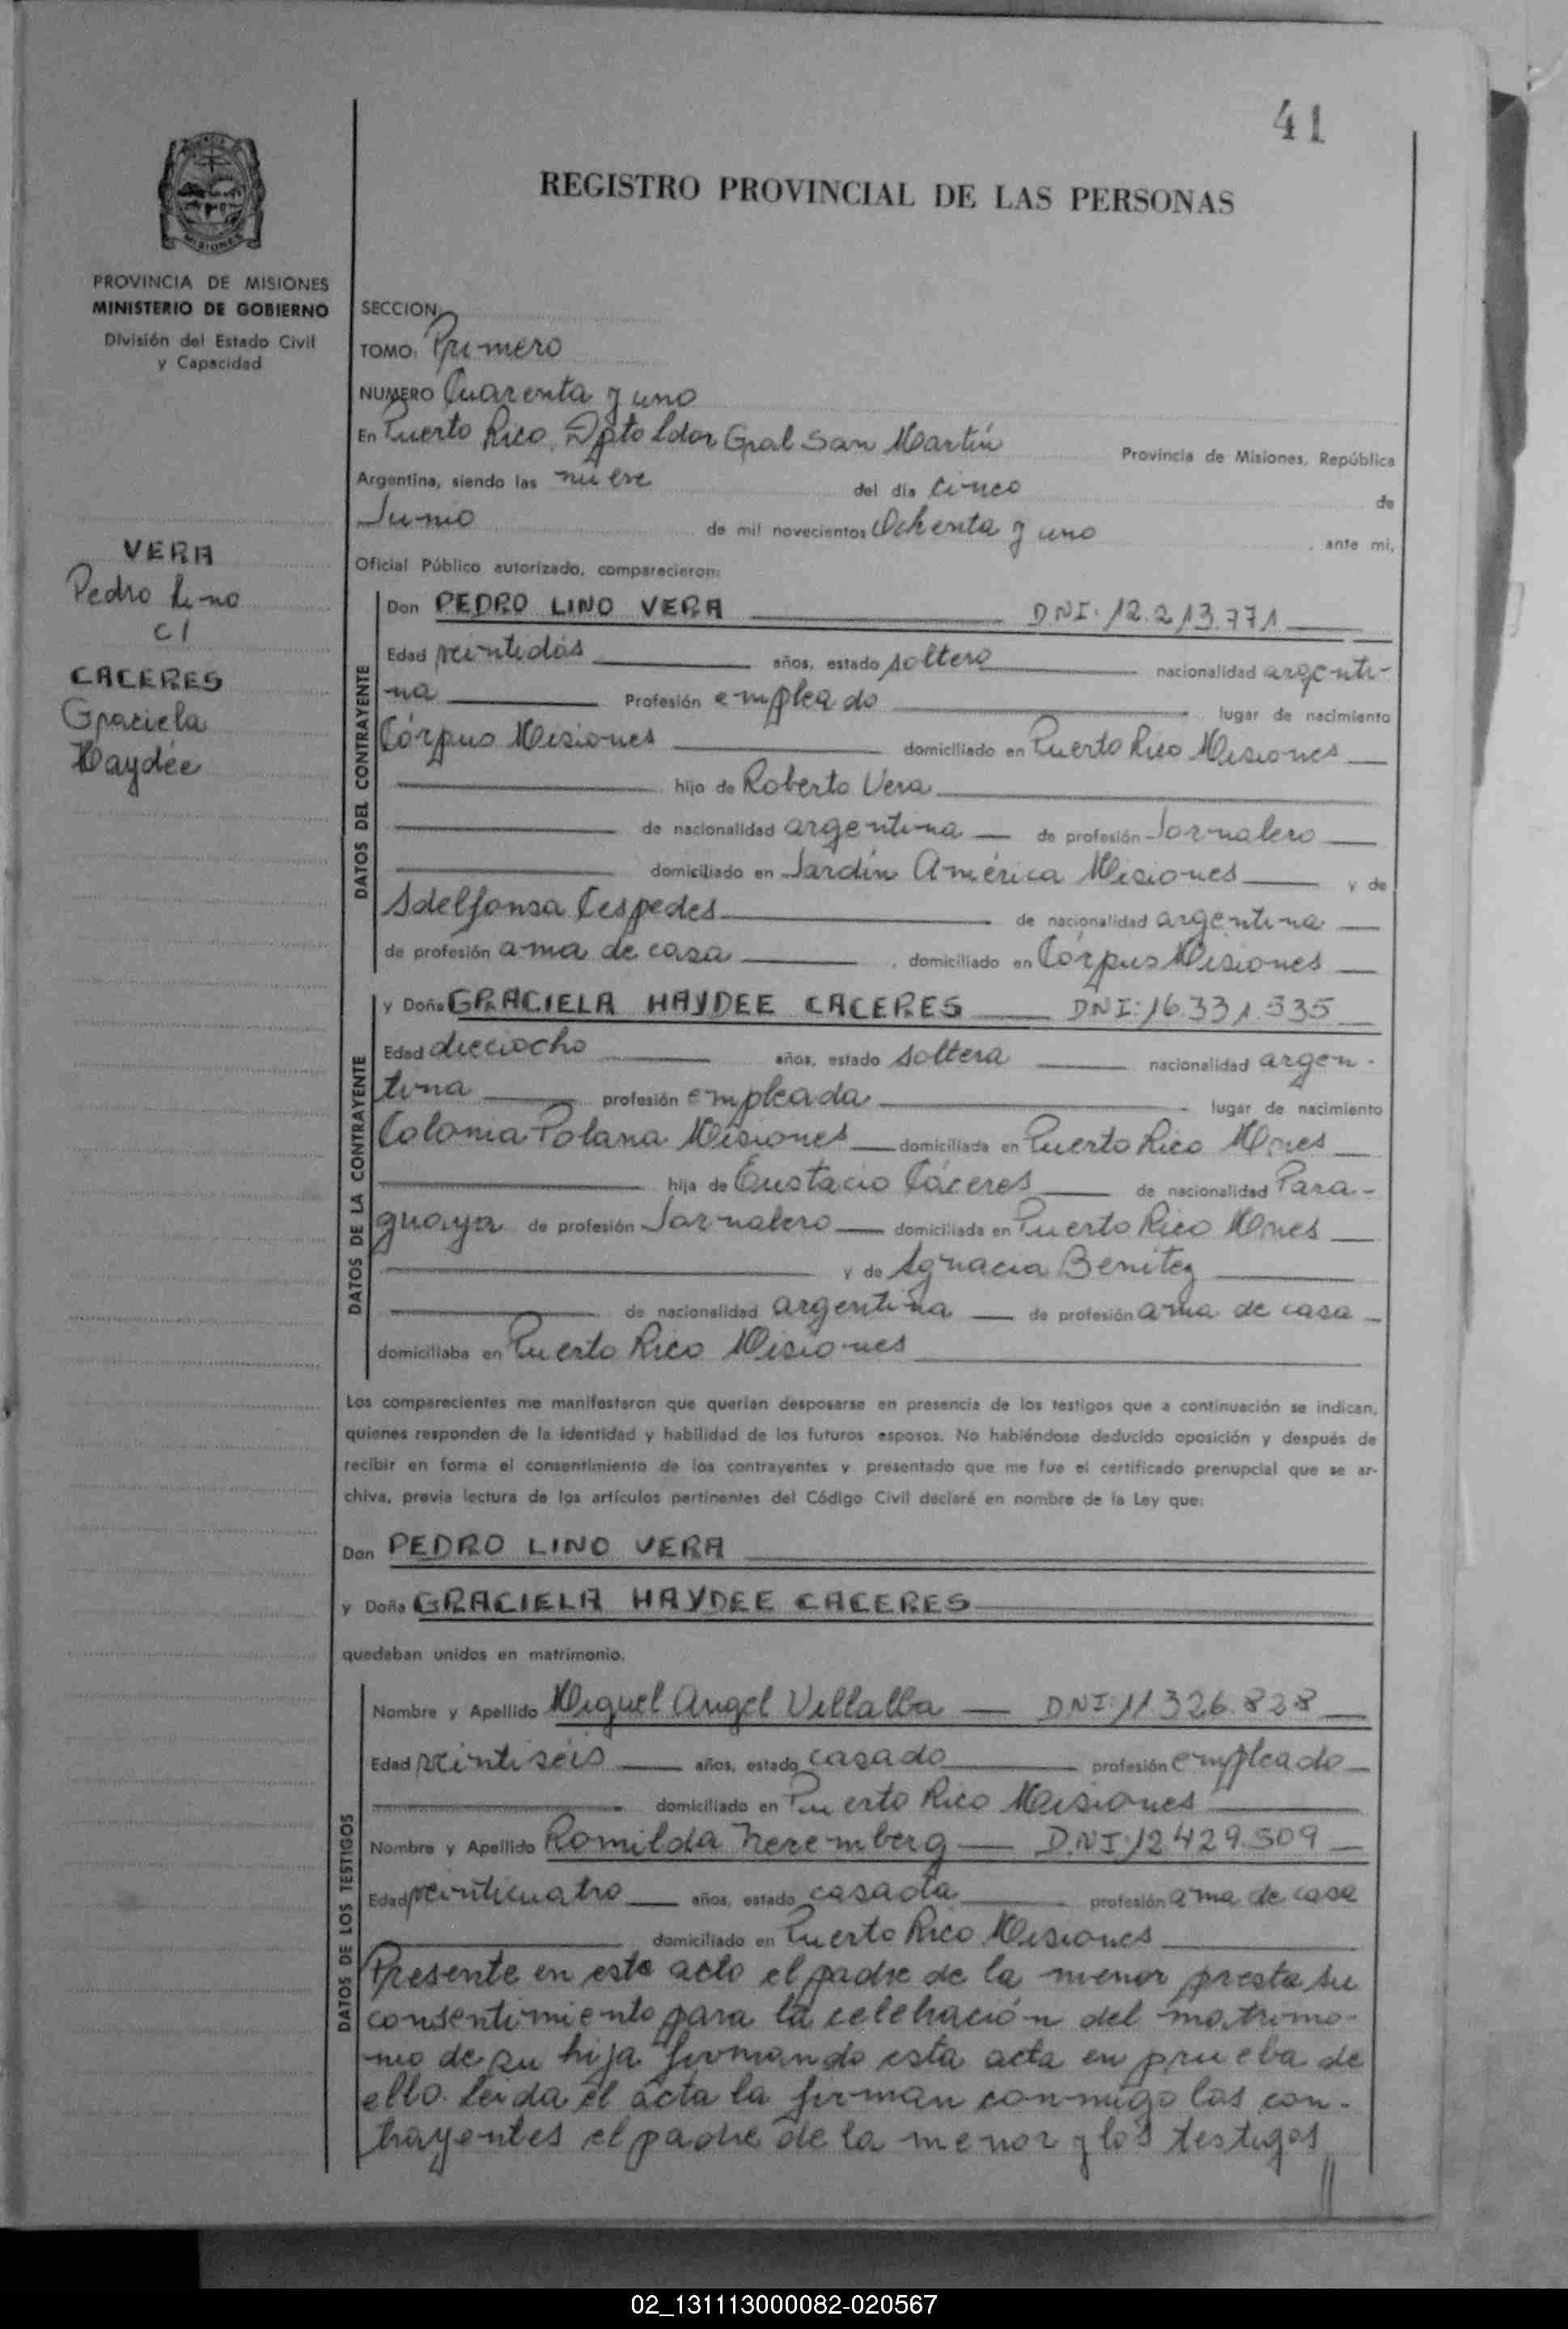 41
REGISTRO PROVINCIAL DE LAS PERSONAS
MISIONES
PROVINCIA DE MISIONES
MINISTERIO DE GOBIERNO
División del Estado Civil
y Capacidad
VERA
Pedro Lino
c/
CACERES
Graciela
Haydée
SECCION
TOMO: Primero
NUMERO Cuarenta y uno
En Puerto Rico, Dpto Ldor Gral San Martín Provincia de Misiones, República
Argentina, siendo las nueve del día cinco de
Junio de mil novecientos Ochenta y uno , ante mi,
Oficial Público autorizado, comparecieron:
DATOS DEL CONTRAYENTE
Don PEDRO LINO VERA DNI: 12.213.771
Edad veintidos años, estado soltero nacionalidad argenti-
na Profesión empleado lugar de nacimiento
Córpus Misiones domiciliado en Puerto Rico Misiones
hijo de Roberto Vera
de nacionalidad argentina de profesión Jornalero
domiciliado en Jardín América Misiones y de
Idelfonsa Cespedes de nacionalidad argentina
de profesión ama de casa , domiciliado en Córpus Misiones
DATOS DE LA CONTRAYENTE
y Doña GRACIELA HAYDEE CACERES DNI: 16.331.335
Edad dieciocho años, estado soltera nacionalidad argen-
tina profesión empleada lugar de nacimiento
Colonia Polana Misiones domiciliada en Puerto Rico Mnes
hija de Eustacio Cáceres de nacionalidad Para-
guaya de profesión Jornalero domiciliada en Puerto Rico Mnes
y de Ignacia Benitez
de nacionalidad argentina de profesión ama de casa
domiciliaba en Puerto Rico Misiones
Los comparecientes me manifestaron que querían desposarse en presencia de los testigos que a continuación se indican,
quienes responden de la identidad y habilidad de los futuros esposos. No habiéndose deducido oposición y después de
recibir en forma el consentimiento de los contrayentes y presentado que me fue el certificado prenupcial que se ar-
chiva, previa lectura de los artículos pertinentes del Código Civil declaré en nombre de la Ley que:
Don PEDRO LINO VERA
y Doña GRACIELA HAYDEE CACERES
quedaban unidos en matrimonio.
DATOS DE LOS TESTIGOS
Nombre y Apellido Miguel Angel Villalba DNI: 11.326.828
Edad veintiséis años, estado casado profesión empleado
domiciliado en Puerto Rico Misiones
Nombre y Apellido Romilda Neremberg D.N.I: 12429.509
Edad veinticuatro años, estado casada profesión ama de casa
domiciliado en Puerto Rico Misiones
Presente en este acto el padre de la menor presta su
consentimiento para la celebración del matrimo-
nio de su hija firmando esta acta en prueba de
ello. Leída el acta la firman conmigo los con-
trayentes el padre de la menor y los testigos
//
02_131113000082-020567